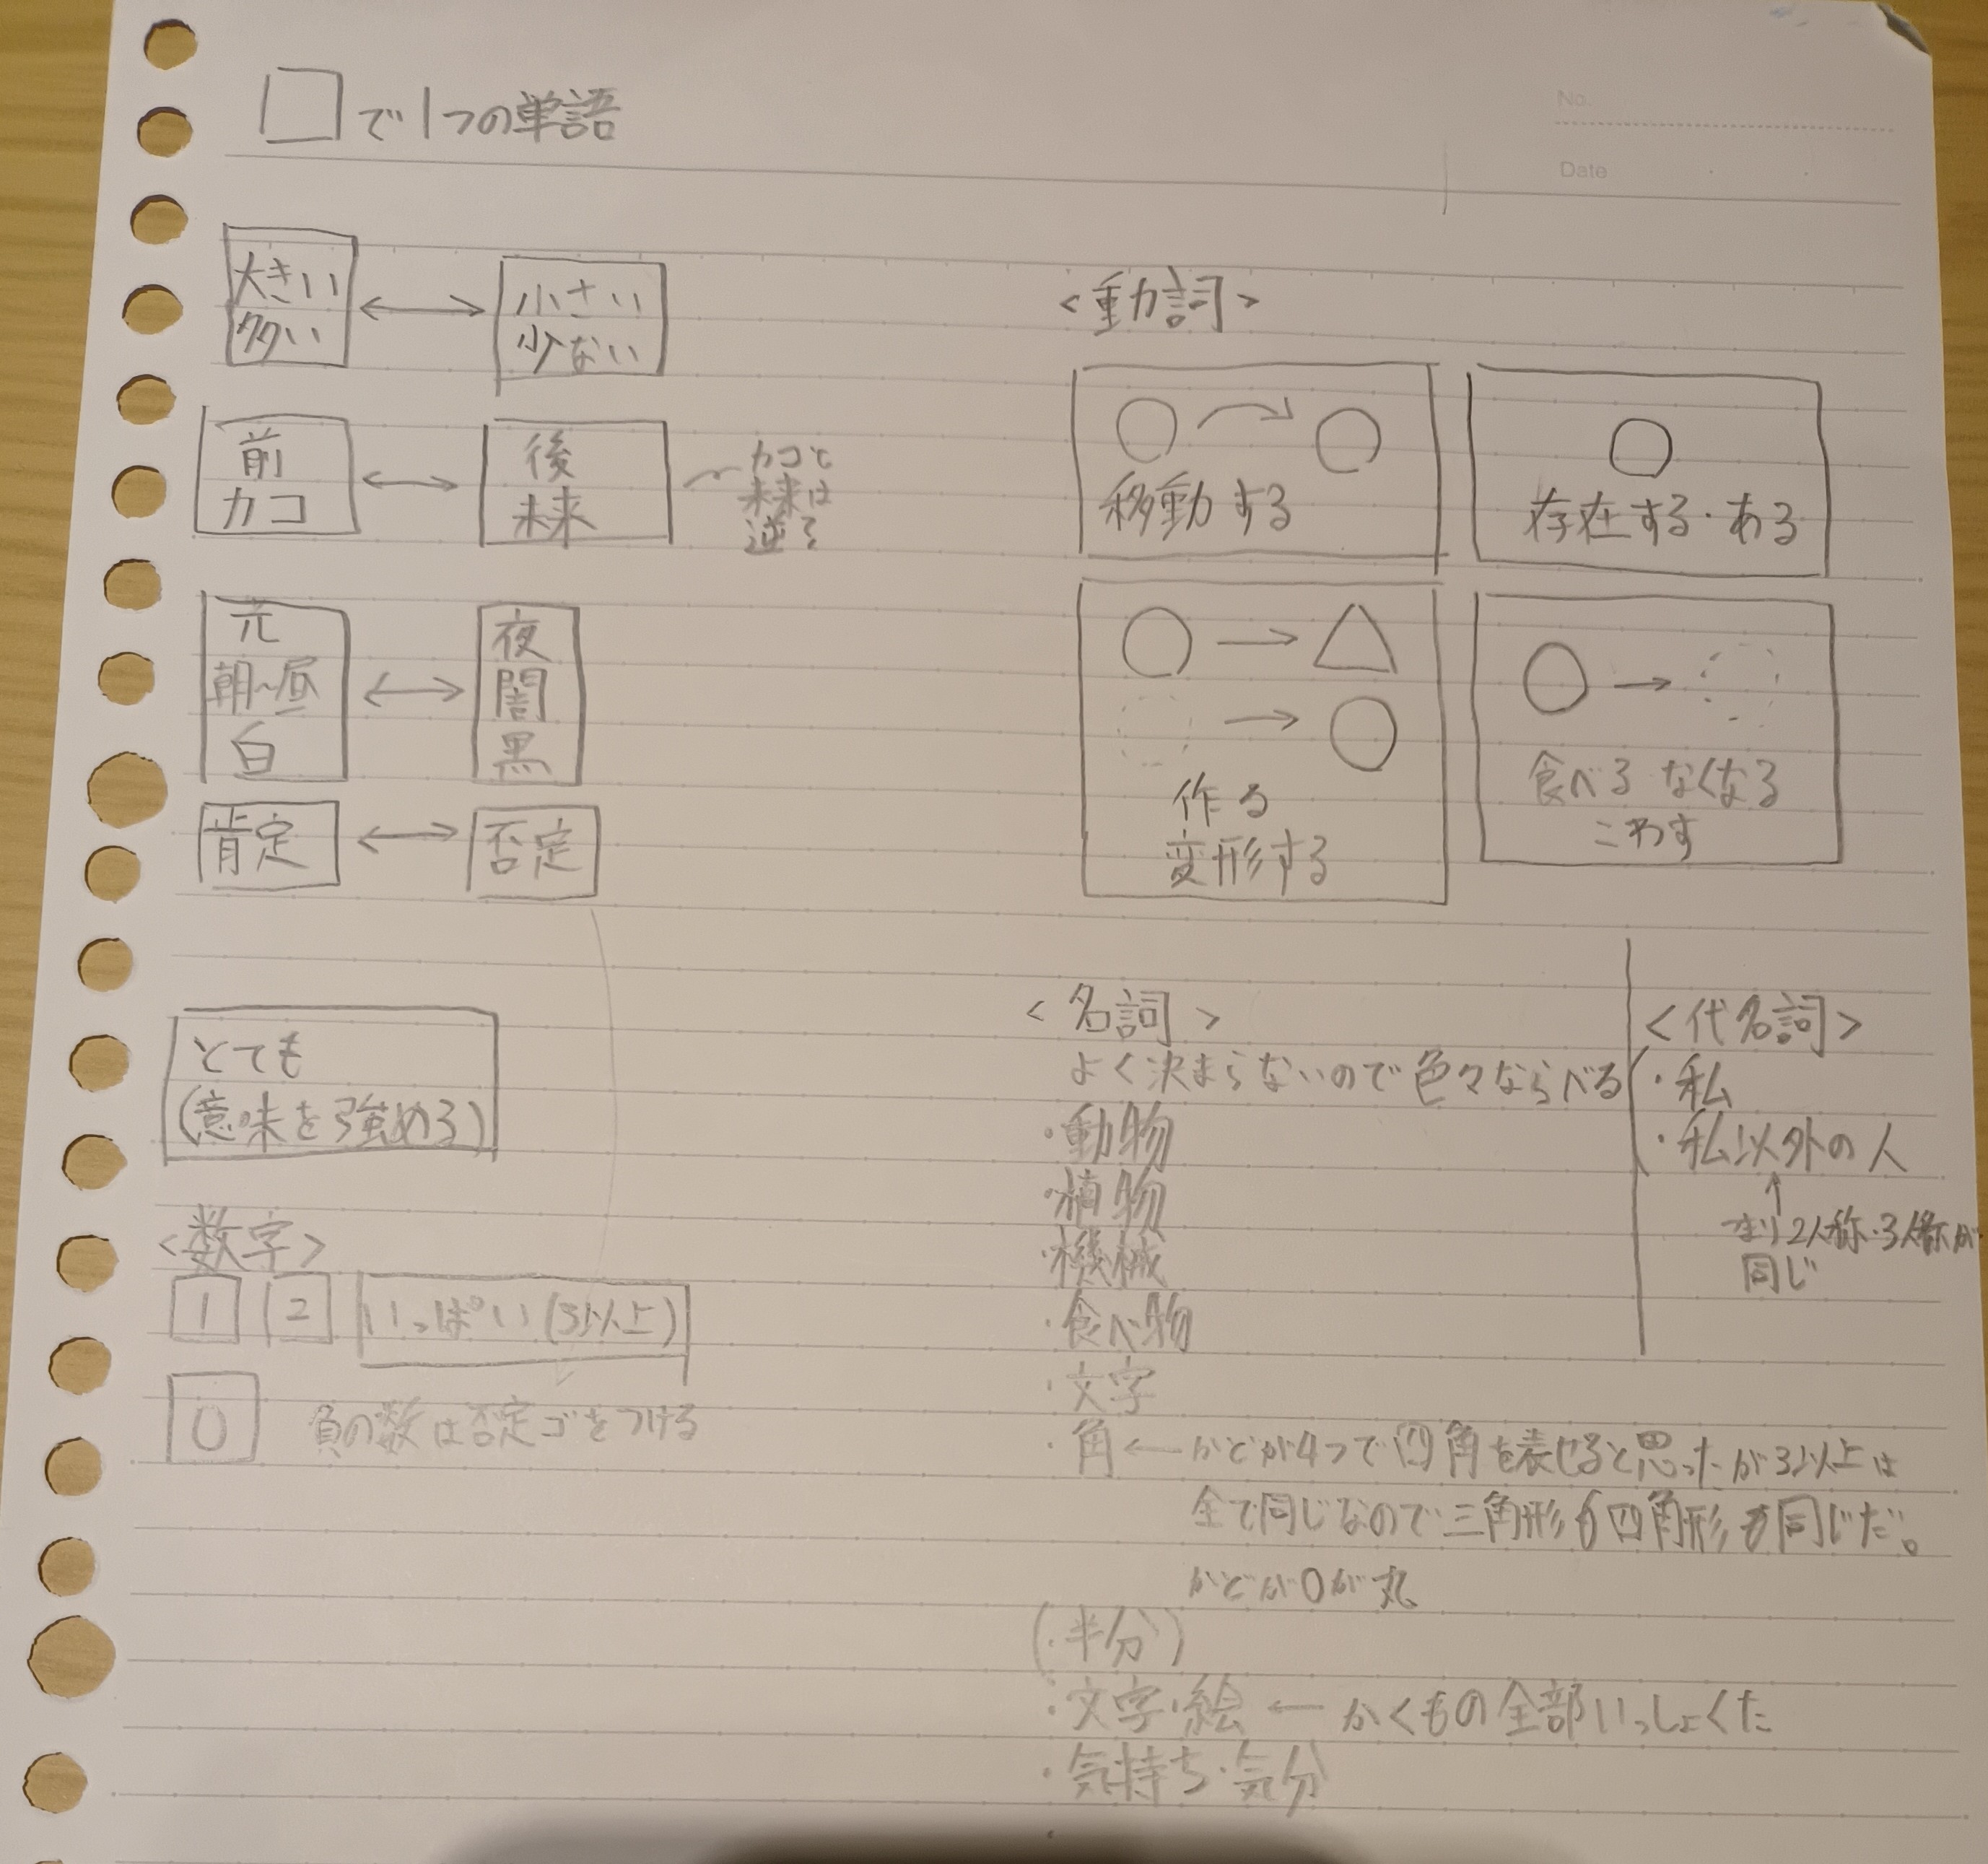 No.
Date
□で1つの単語
大きい
多い
小さい
少ない
前
カコ
後
未来
カコと
未来は
逆?
元
朝~昼
白
夜
闇
黒
肯定
否定
とても
(意味を強める)
<数字>
1 2 いっぱい(3以上)
0 負の数は否定ゴをつける
<動詞>
移動する
存在する・ある
作る
変形する
食べる なくなる
こわす
<名詞>
よく決まらないので色々ならべる
・動物
・植物
・機械
・食べ物
・文字
・角←かどが4つで四角を表せると思ったが3以上は
全て同じなので三角形も四角形も同じだ。
かどが0が丸
(・半分)
・文字・絵←かくもの全部いっしょくた
・気持ち・気分
<代名詞>
・私
・私以外の人
↑
つまり2人称・3人称が
同じ